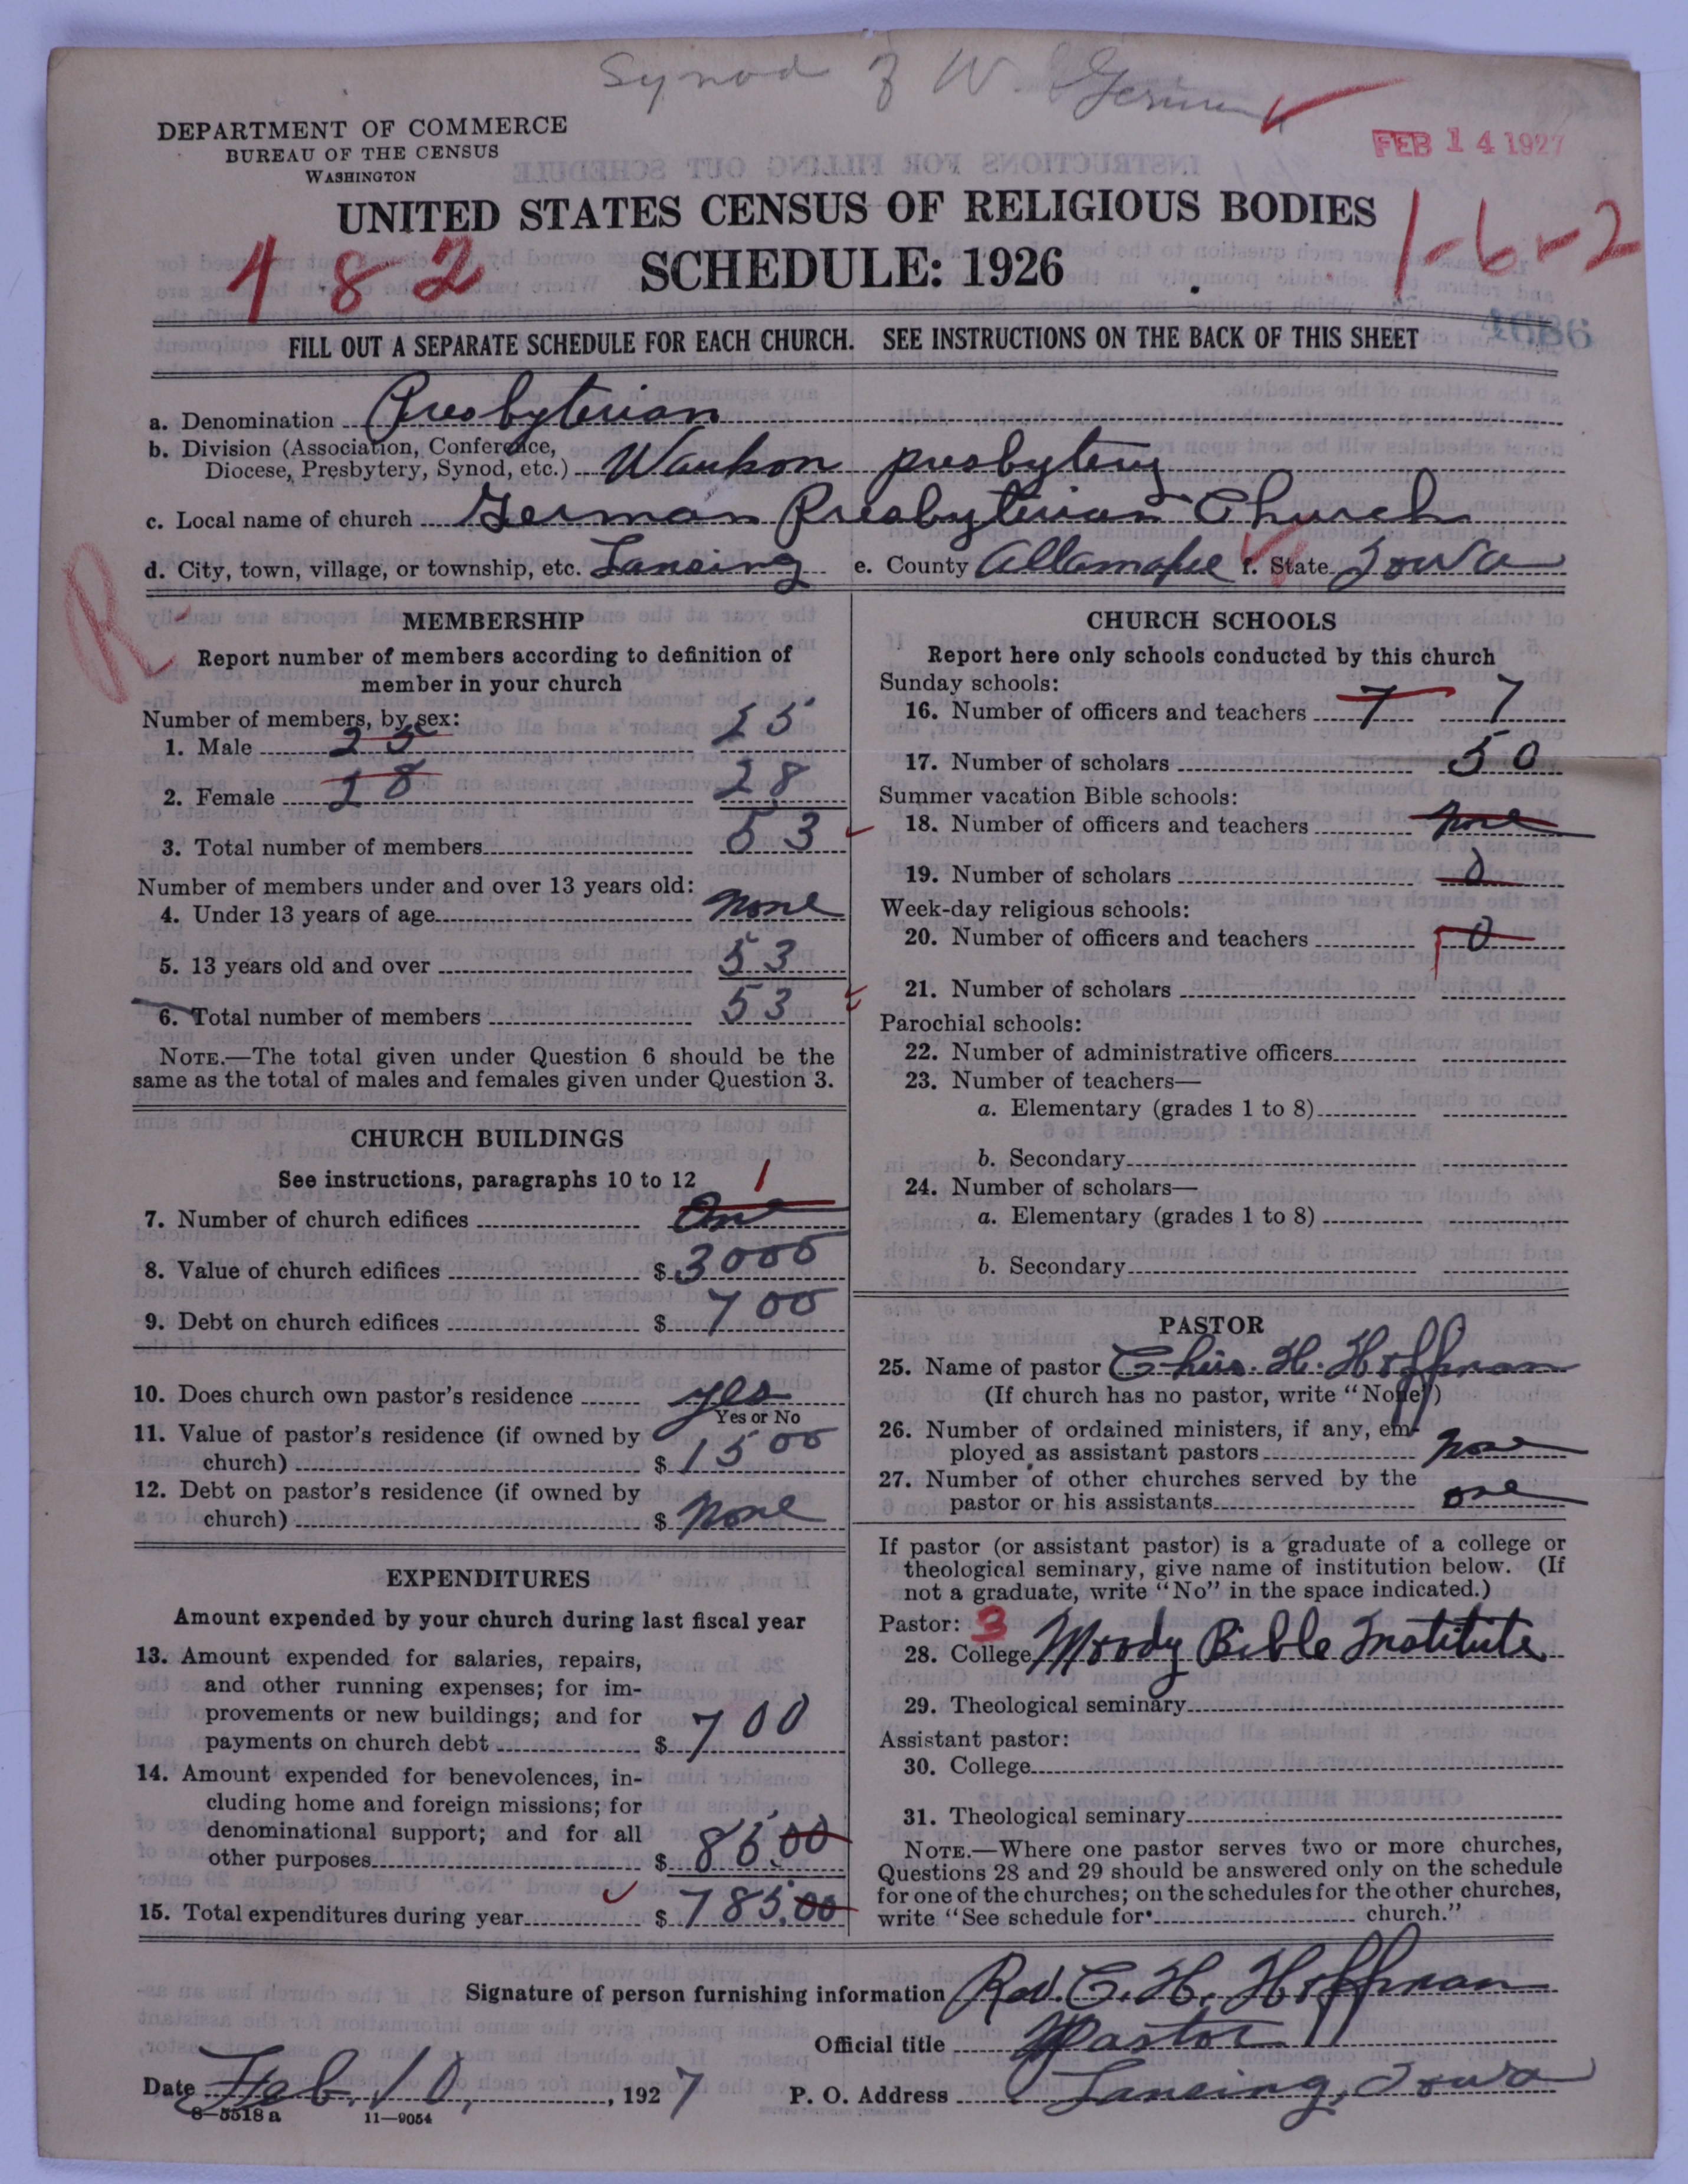 Synod of W. German
DEPARTMENT OF COMMERCE
BUREAU OF THE CENSUS
WASHINGTON
FEB 14 1927
UNITED STATES CENSUS OF RELIGIOUS BODIES
SCHEDULE: 1926
482
1-6-2
FILL OUT A SEPARATE SCHEDULE FOR EACH CHURCH. SEE INSTRUCTIONS ON THE BACK OF THIS SHEET
a. Denomination Presbyterian
b. Division (Association, Conference,
Diocese, Presbytery, Synod, etc.) Waukon presbytery
c. Local name of church German Presbyterian Church
d. City, town, village, or township, etc. Lansing e. County Allamakee f. State Iowa
R
MEMBERSHIP
Report number of members according to definition of
member in your church
Number of members, by sex:
1. Male 25 25
2. Female 28 28
3. Total number of members 53
Number of members under and over 13 years old:
4. Under 13 years of age none
5. 13 years old and over 53
6. Total number of members 53
NOTE.—The total given under Question 6 should be the
same as the total of males and females given under Question 3.
CHURCH BUILDINGS
See instructions, paragraphs 10 to 12
1
7. Number of church edifices One
8. Value of church edifices $ 3000
9. Debt on church edifices $ 700
10. Does church own pastor's residence yes
Yes or No
11. Value of pastor's residence (if owned by
church) $ 1500
12. Debt on pastor's residence (if owned by
church) $ none
EXPENDITURES
Amount expended by your church during last fiscal year
13. Amount expended for salaries, repairs,
and other running expenses; for im-
provements or new buildings; and for
payments on church debt $ 700
14. Amount expended for benevolences, in-
cluding home and foreign missions; for
denominational support; and for all
other purposes $ 85.00
15. Total expenditures during year $ 785.00
CHURCH SCHOOLS
Report here only schools conducted by this church
Sunday schools:
16. Number of officers and teachers 7 7
17. Number of scholars 50
Summer vacation Bible schools:
18. Number of officers and teachers none
19. Number of scholars 0
Week-day religious schools:
20. Number of officers and teachers 0
21. Number of scholars
Parochial schools:
22. Number of administrative officers
23. Number of teachers—
a. Elementary (grades 1 to 8)
b. Secondary
24. Number of scholars—
a. Elementary (grades 1 to 8)
b. Secondary
PASTOR
25. Name of pastor Chris. H. Hoffman
(If church has no pastor, write "None")
26. Number of ordained ministers, if any, em-
ployed as assistant pastors none
27. Number of other churches served by the
pastor or his assistants one
If pastor (or assistant pastor) is a graduate of a college or
theological seminary, give name of institution below. (If
not a graduate, write "No" in the space indicated.)
Pastor: 3
28. College Moody Bible Institute
29. Theological seminary
Assistant pastor:
30. College
31. Theological seminary
NOTE.—Where one pastor serves two or more churches,
Questions 28 and 29 should be answered only on the schedule
for one of the churches; on the schedules for the other churches,
write "See schedule for church."
Signature of person furnishing information Rev. C. H. Hoffman
Official title Pastor
Date Feb. 10, 1927 P. O. Address Lansing, Iowa
8-5518 a 11-9054